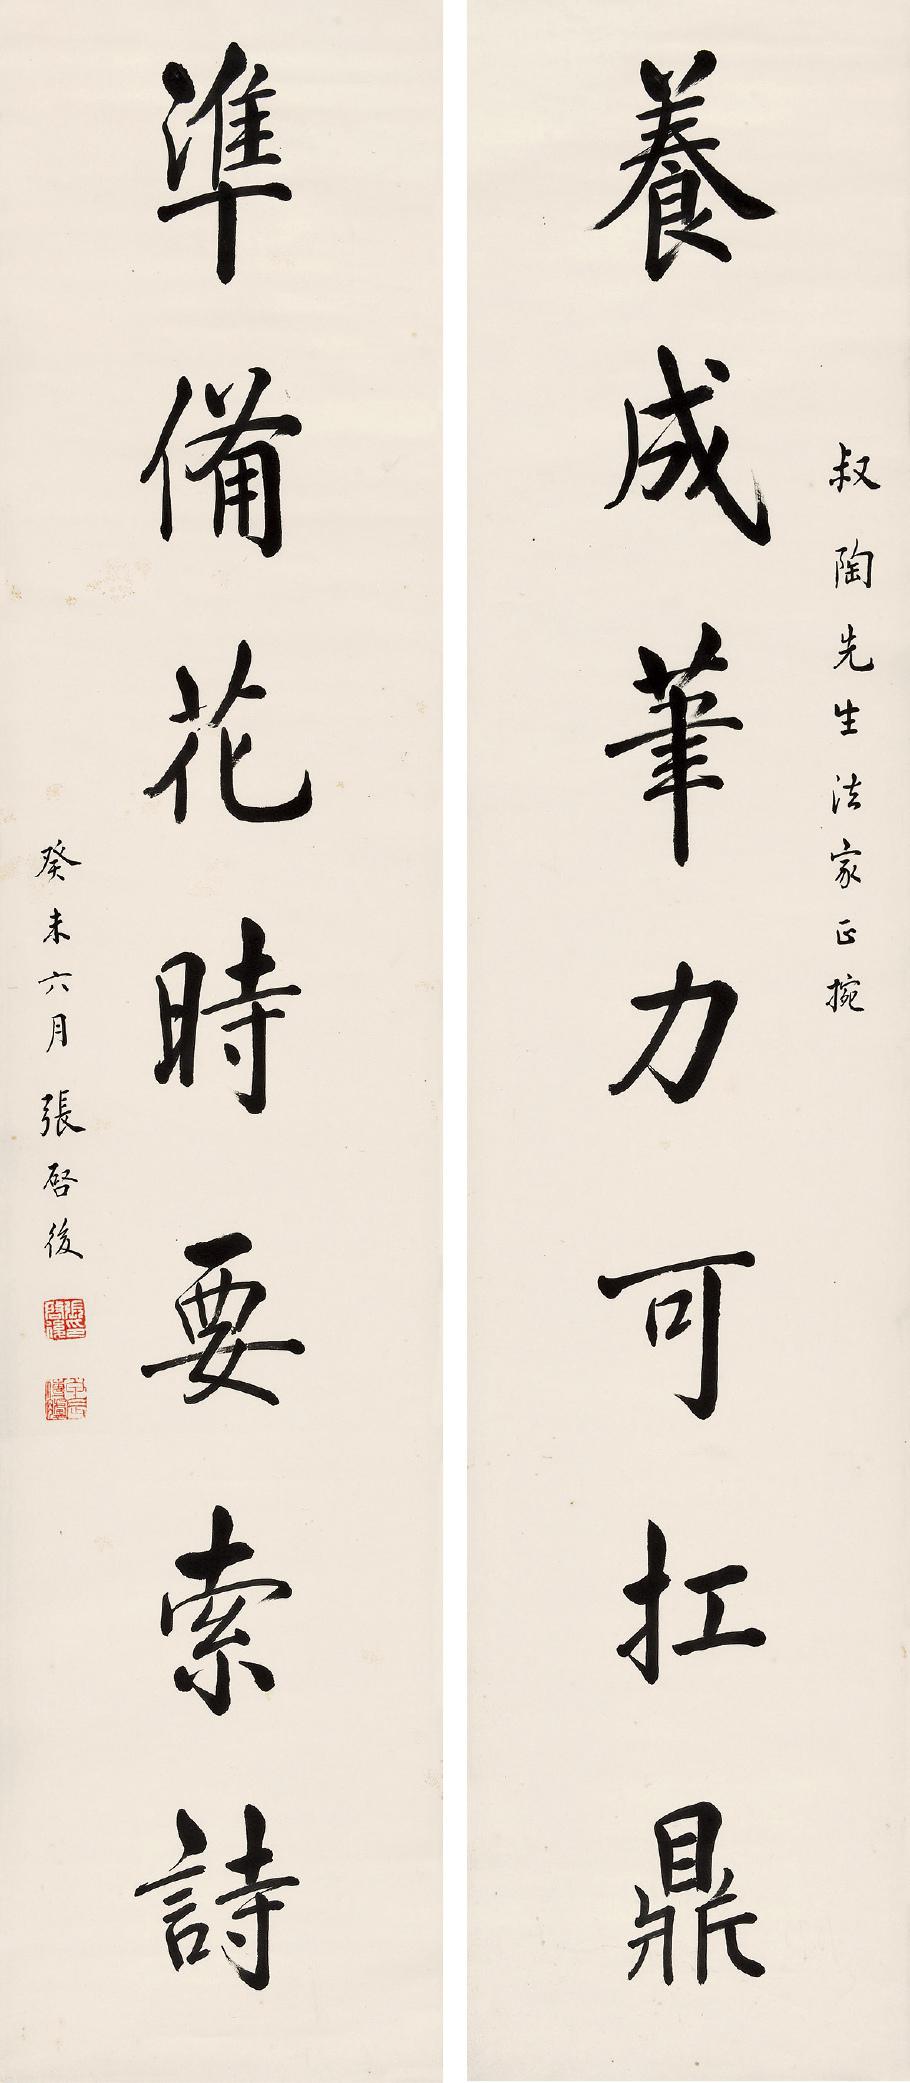 叔陶先生法家正捥
養成筆力可扛鼎
準備花時要索詩
癸未六月張啓後